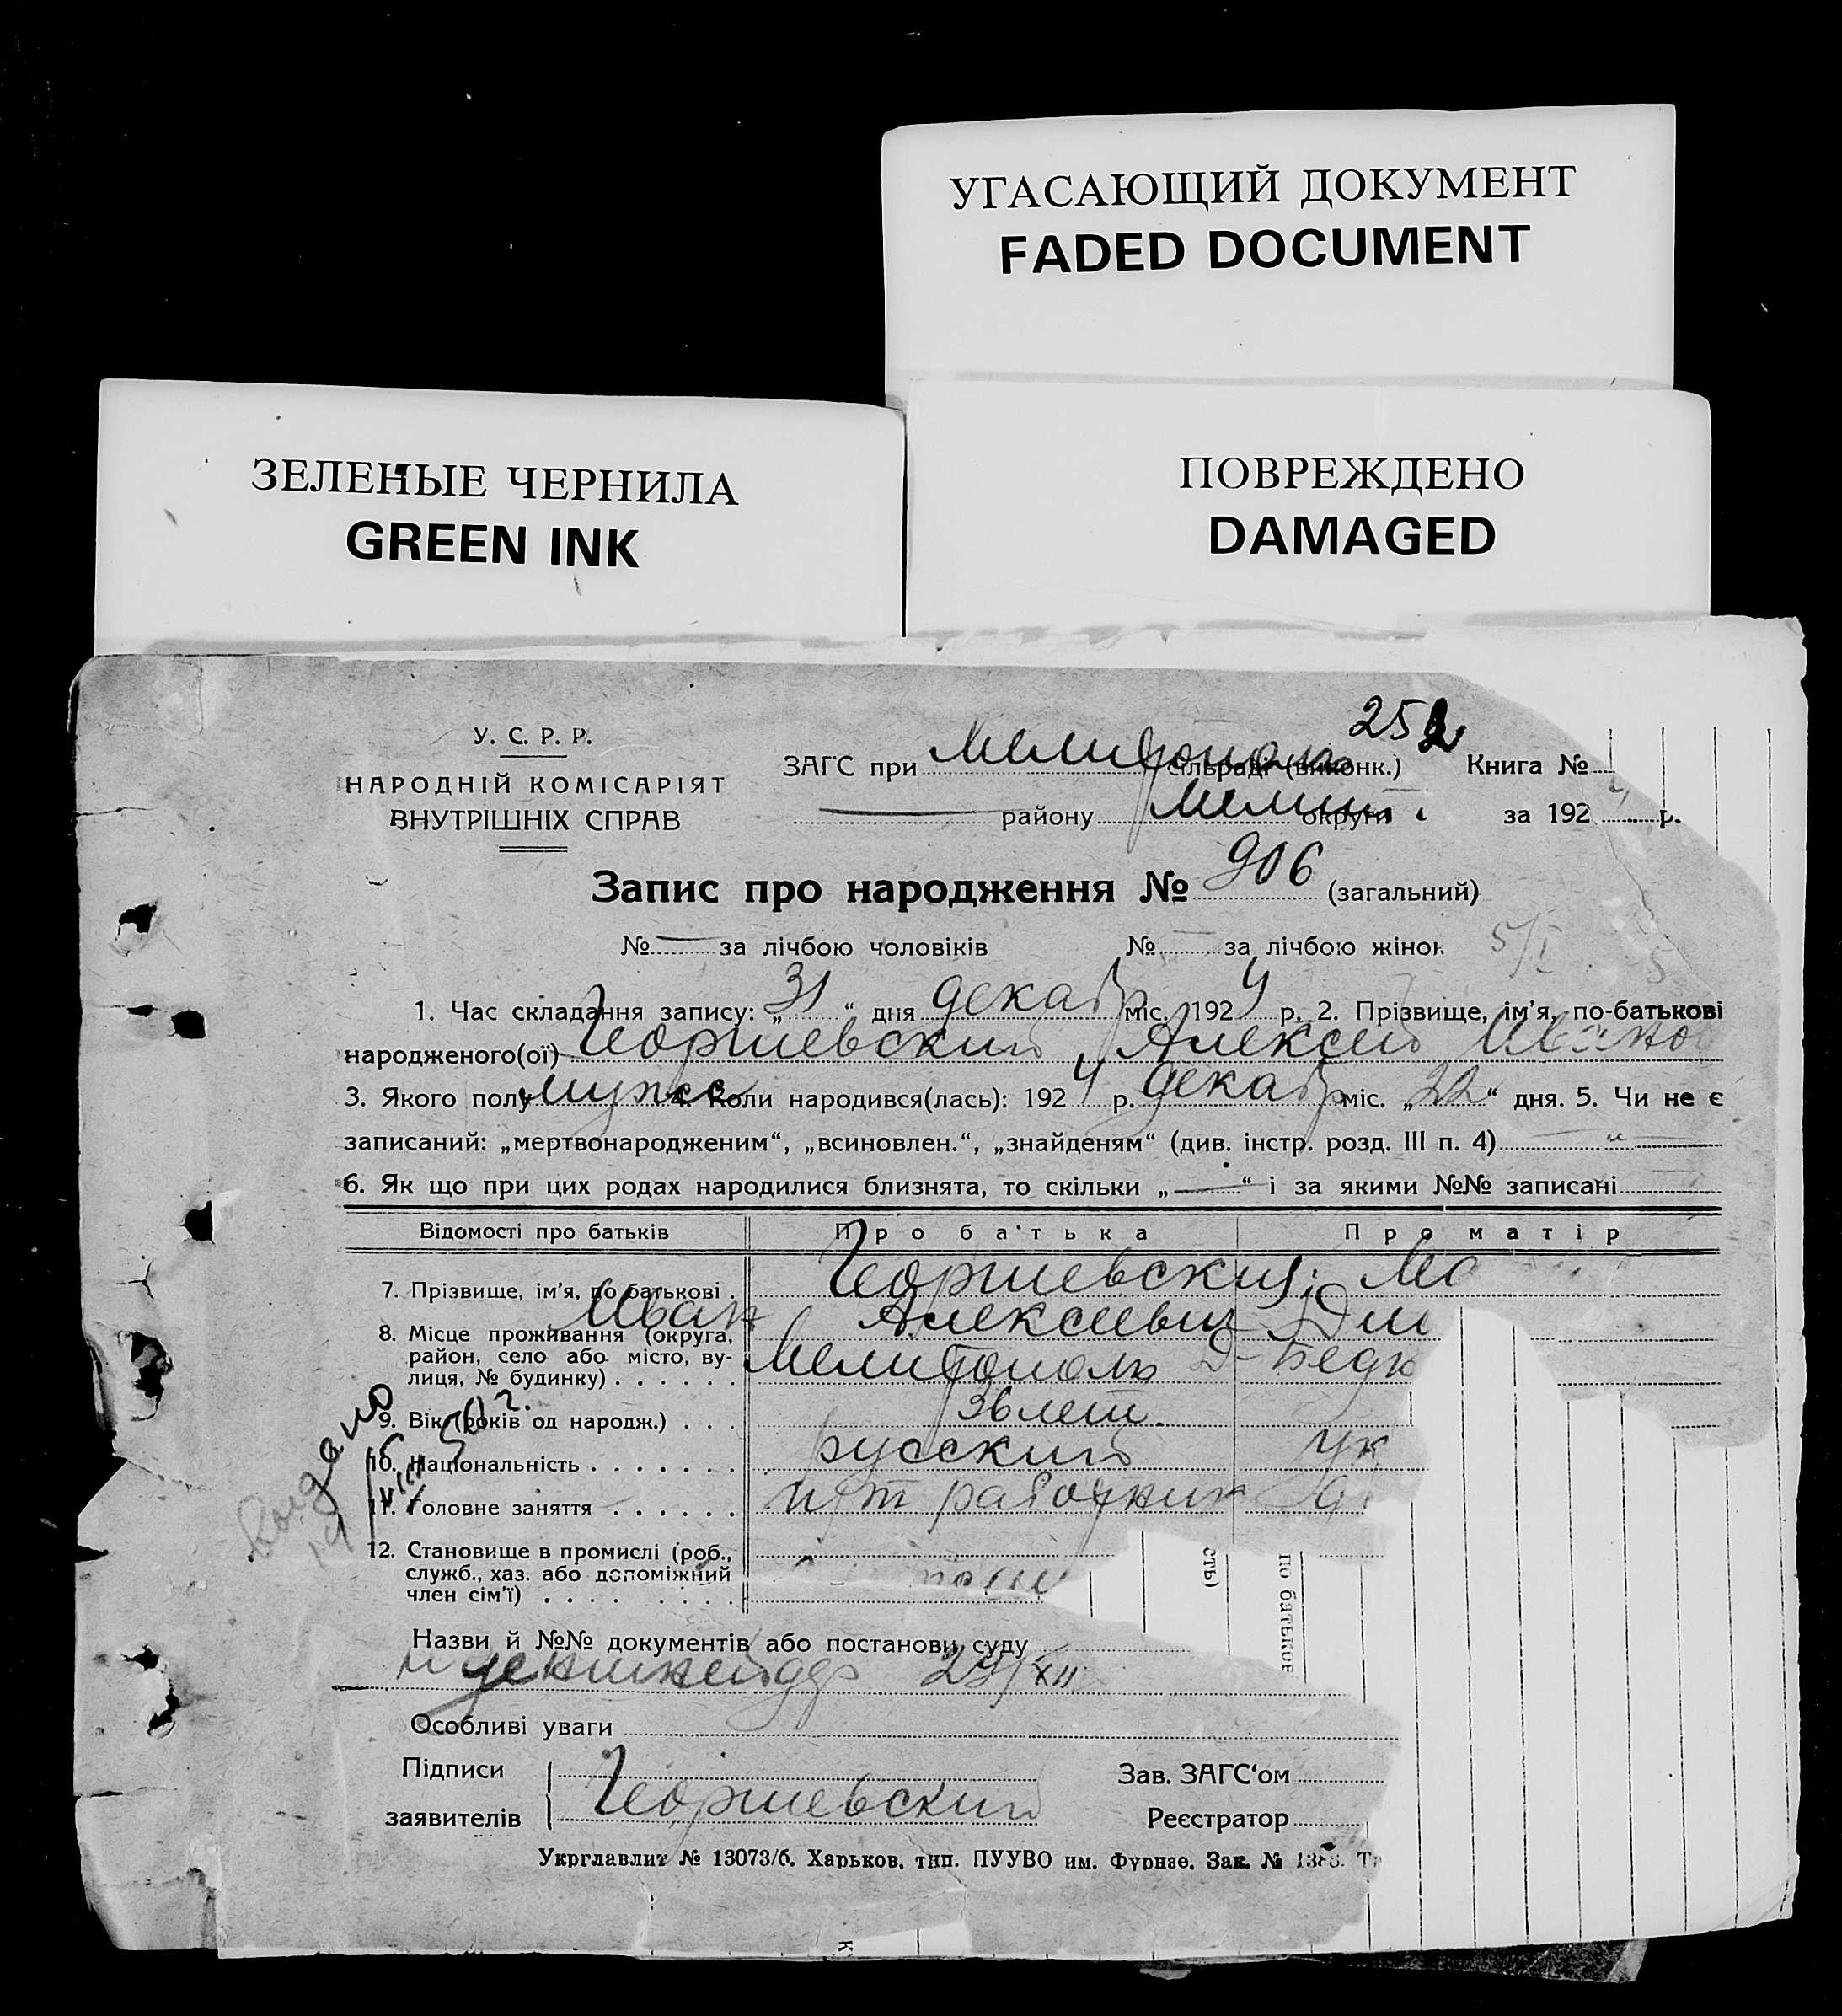 УГАСАЮЩИЙ ДОКУМЕНТ
FADED DOCUMENT
ЗЕЛЕНЫЕ ЧЕРНИЛА
GREEN INK
ПОВРЕЖДЕНО
DAMAGED
252
У. С. Р. Р.
НАРОДНІЙ КОМІСАРІЯТ
ВНУТРІШНІХ СПРАВ
ЗАГС при Мелитополь сільраді (виконк.) Книга №
району Мелит округи за 192 р.
Запис про народження № 906 (загальний)
№ — за лічбою чоловіків № — за лічбою жінок 5/I
1. Час складання запису: „31“ дня декабр міс. 1924 р. 2. Прізвище, ім'я, по-батькові
народженого(ої) Георгиевский Алексей Иванов
3. Якого полу мужс 4. Коли народився(лась): 1924 р. декабр міс. „22“ дня. 5. Чи не є
записаний: „мертвонародженим“, „всиновлен.“, „знайденям“ (див. інстр. розд. III п. 4) — „ —
6. Як що при цих родах народилися близнята, то скільки „—“ і за якими №№ записані
Відомості про батьків Про батька Про матір
7. Прізвище, ім'я, по батькові . Георгиевский
Иван Алексеевич
8. Місце проживання (округа,
район, село або місто, ву-
лиця, № будинку) . . . . . . Мелитополь
9. Вік (років од народж.) . . . 36 лет.
10. Національність . . . . . . . русский ук
11. Головне заняття . . . . . . работник
12. Становище в промислі (роб.,
служб., хаз. або допоміжний
член сім'ї) . . . . . . . .
сть)
по батькові
Назви й №№ документів або постанови суду
29/XII
Особливі уваги
Підписи
заявителів Георгиевский
Зав. ЗАГС‘ом
Реєстратор
Укрглавлит № 13073/б. Харьков, тип. ПУУВО им. Фрунзе. Зак. №
к